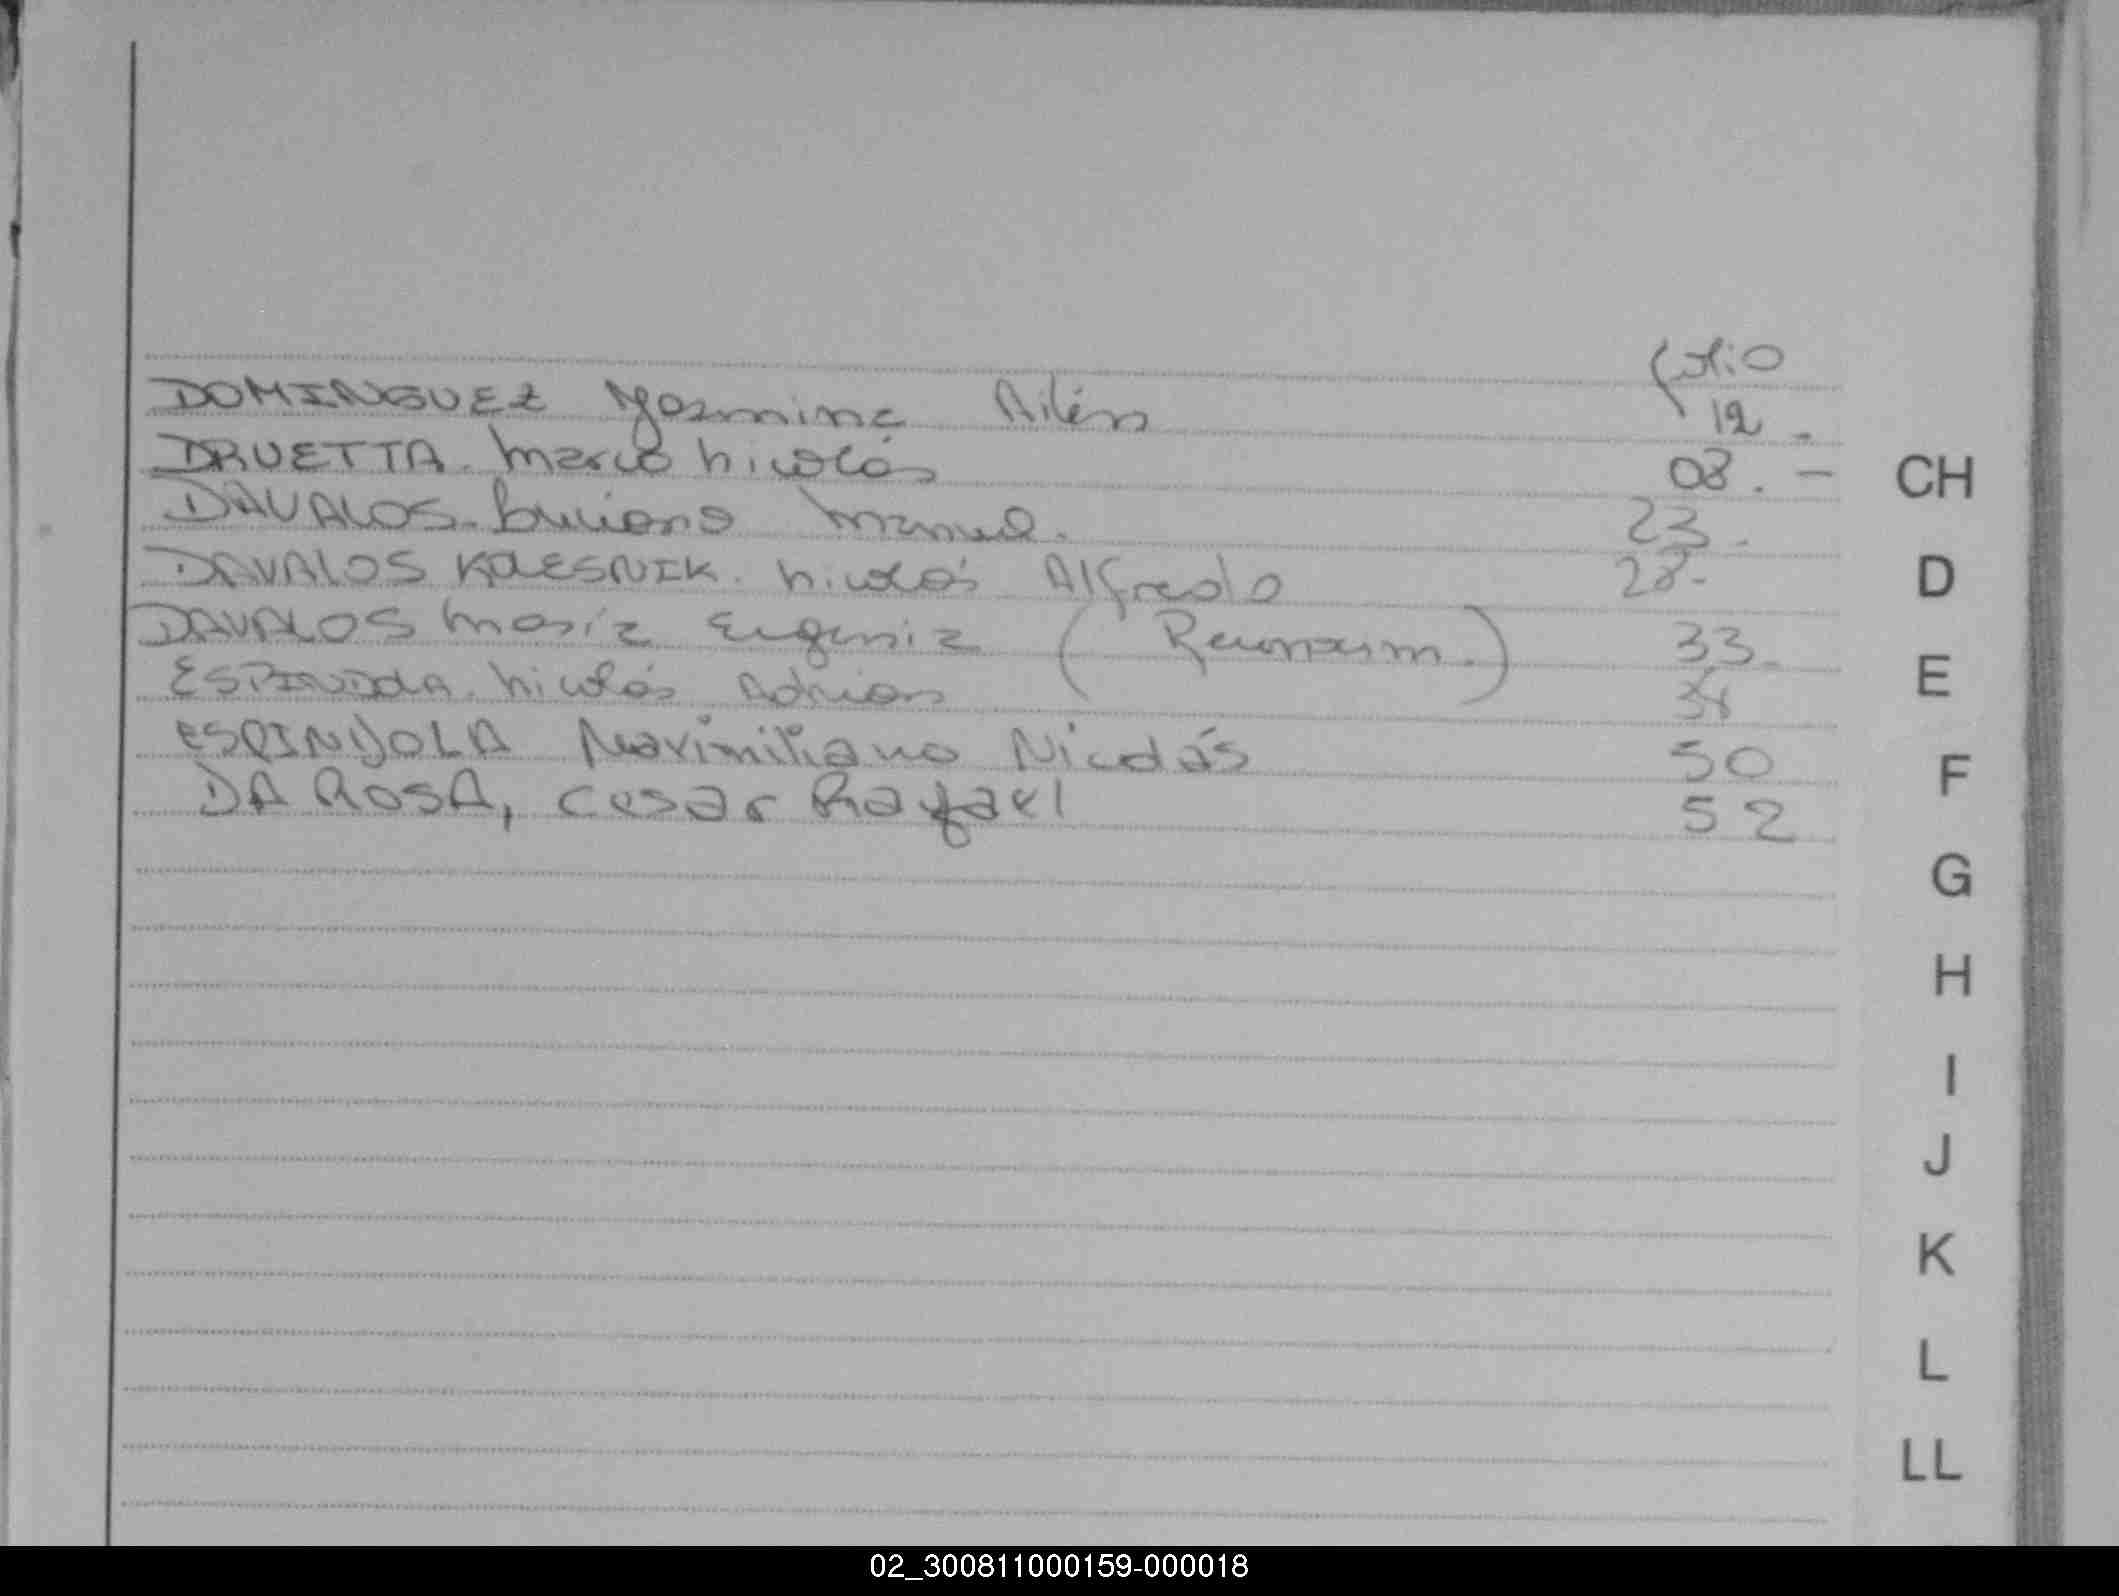 folio
DOMINGUEZ Yasmina Ailén 12.
DRUETTA. Marco Nicolás 08. -
DAVALOS. Luciano Manuel. 23.
DAVALOS KOLESNIK. Nicolás Alfredo 28-
DAVALOS María Eugenia (Reconocim.) 33.
ESPINDOLA. Nicolás Adrian 34
ESPINDOLA Maximiliano Nicolás 50
DA ROSA, Cesar Rafael 52
CH
D
E
F
G
H
I
J
K
L
LL
02_300811000159-000018